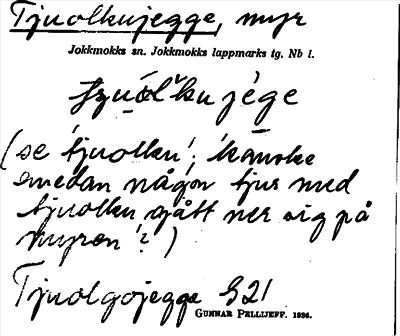 Tjuolkujegge, myr
Jokkmokks sn. Jokkmokks lappmarks tg. Nb l.
jège
(se 'tjuolku'; kanske
emedan någon tjur med
tjuolku gått ner sig på
myren'?)
Tjuolgojegge G21
GUNNAR PELLIJEFF. 1936.